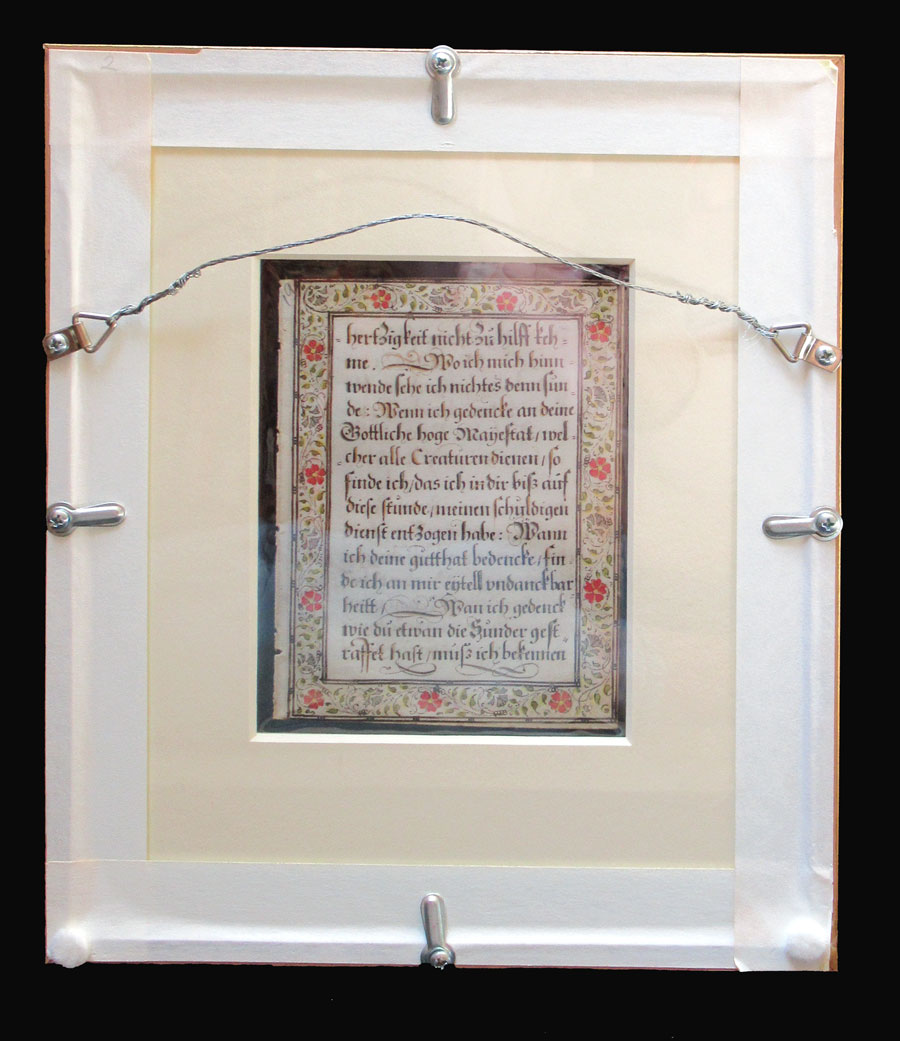 2
hertzigkeit nicht zu hilff keh=
me. Wo ich mich hinn
wende sehe ich nichtes denn sün
de: Wenn ich gedencke an deine
Göttliche hoge Mayestat/wel=
cher alle Creaturen dienen/so
finde ich/das ich in dir biß auf
diese stunde/meinen schuldigen
dienst entzogen habe: Wann
ich deine gutthat bedencke/fin=
de ich an mir eytell vndanckbar
heitt/ Wan ich gedenck
wie du etwan die Sunder gest=
raffet hast/muß ich bekennen